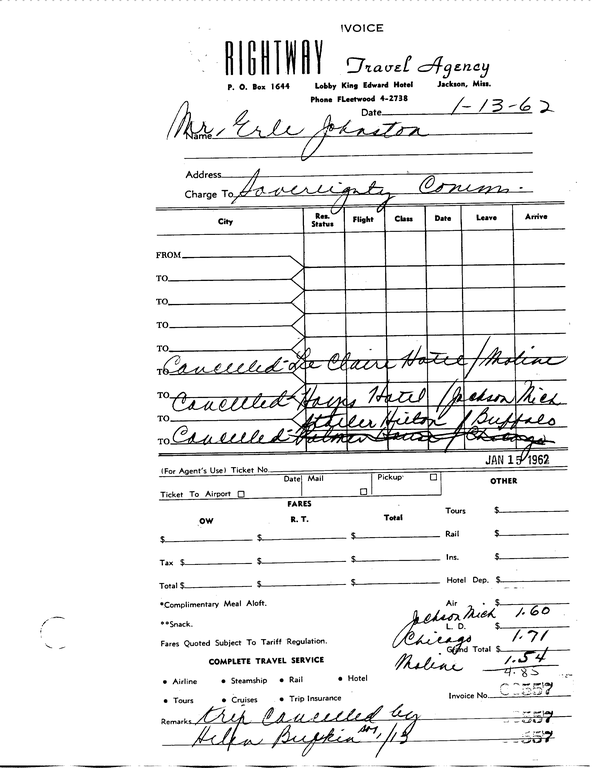 IVOICE
RIGHTWAY Travel Agency
P. O. Box 1644 Lobby King Edward Hotel Jackson, Miss.
Phone FLeetwood 4-2738
Date 1-13-62
Name Mr. Erle Johnston
Address
Charge To Sovereignty Comm.
City Res. Status Flight Class Date Leave Arrive
FROM
TO
TO
TO
TO
TO Cancelled - Le Claire Hotel / Moline
TO Cancelled - Hays Hotel / Jackson Mich
Statler Hilton / Buffalo
TO Cancelled - Palmer House / Chicago
JAN 15 1962
(For Agent's Use) Ticket No.
Date Mail Pickup OTHER
Ticket To Airport
FARES
Tours $
OW R. T. Total
$ $ $ Rail $
Tax $ $ $ Ins. $
Total $ $ $ Hotel Dep. $
*Complimentary Meal Aloft. Air $
Jackson Mich 1.60
**Snack. L. D. $
Chicago 1.71
Fares Quoted Subject To Tariff Regulation. Grand Total $
Moline 1.54
COMPLETE TRAVEL SERVICE 4.85
• Airline • Steamship • Rail • Hotel
Invoice No.
• Tours • Cruises • Trip Insurance
Remarks trip cancelled by
Helen 1/13